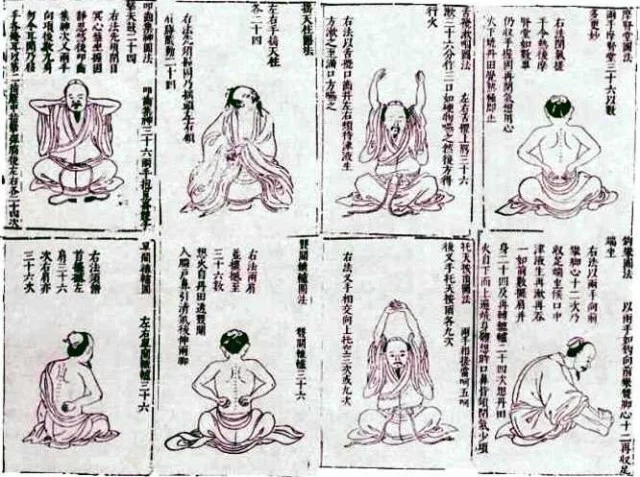 摩腎堂圖法
兩手摩腎堂三十六以數
多更妙
右法閉氣搓
手令熱後摩
腎堂如數畢
仍收手握固再閉氣想用心
火下燒丹田覺熱極即止
舌攪漱咽圖法 左右舌攪上腭三十六
漱三十六分作三口如硬物嚥之然後方得
行火
右法以舌攪口齒并左右頰待津液生
方漱之至滿口方嚥之
撼天柱圖法
左右手搖天柱
各二十四
右法先須握固乃搖頭左右顧
肩膊隨動二十四
叩齒集神圖法 叩齒集神三十六兩手抱崑崙雙手
擊天鼓二十四
右法先須閉目
冥心盤坐握固
靜思然後叩齒
集神次叉兩手
向項後數九息
勿令耳聞乃移
手各掩耳以第二指壓中指擊彈腦後左右各二十四次
鉤攀圖法 以兩手如鉤向前攀雙脚心十二再收足
端坐
右法以兩手向前
攀脚心十二次乃
收足端坐候口中
津液生再漱再吞
一如前數擺肩并
身二十四及再轉轆轤二十四次想丹田
火自下而上遍燒身體想時口鼻皆須閉氣少頃
托天按頂圖法 兩手相搓當呵五呵
後叉手托天按頂各九次
右法叉手相交向上托空三次或九次
雙關轆轤圖法 雙關轆轤三十六
右法兩肩
並擺撼至
三十六數
想火自丹田透雙關
入腦戶鼻引清氣後伸兩脚
單關轆轤圖 左右單關轆轤三十六
右法須俯
首擺撼左
肩三十六
次右肩亦
三十六次